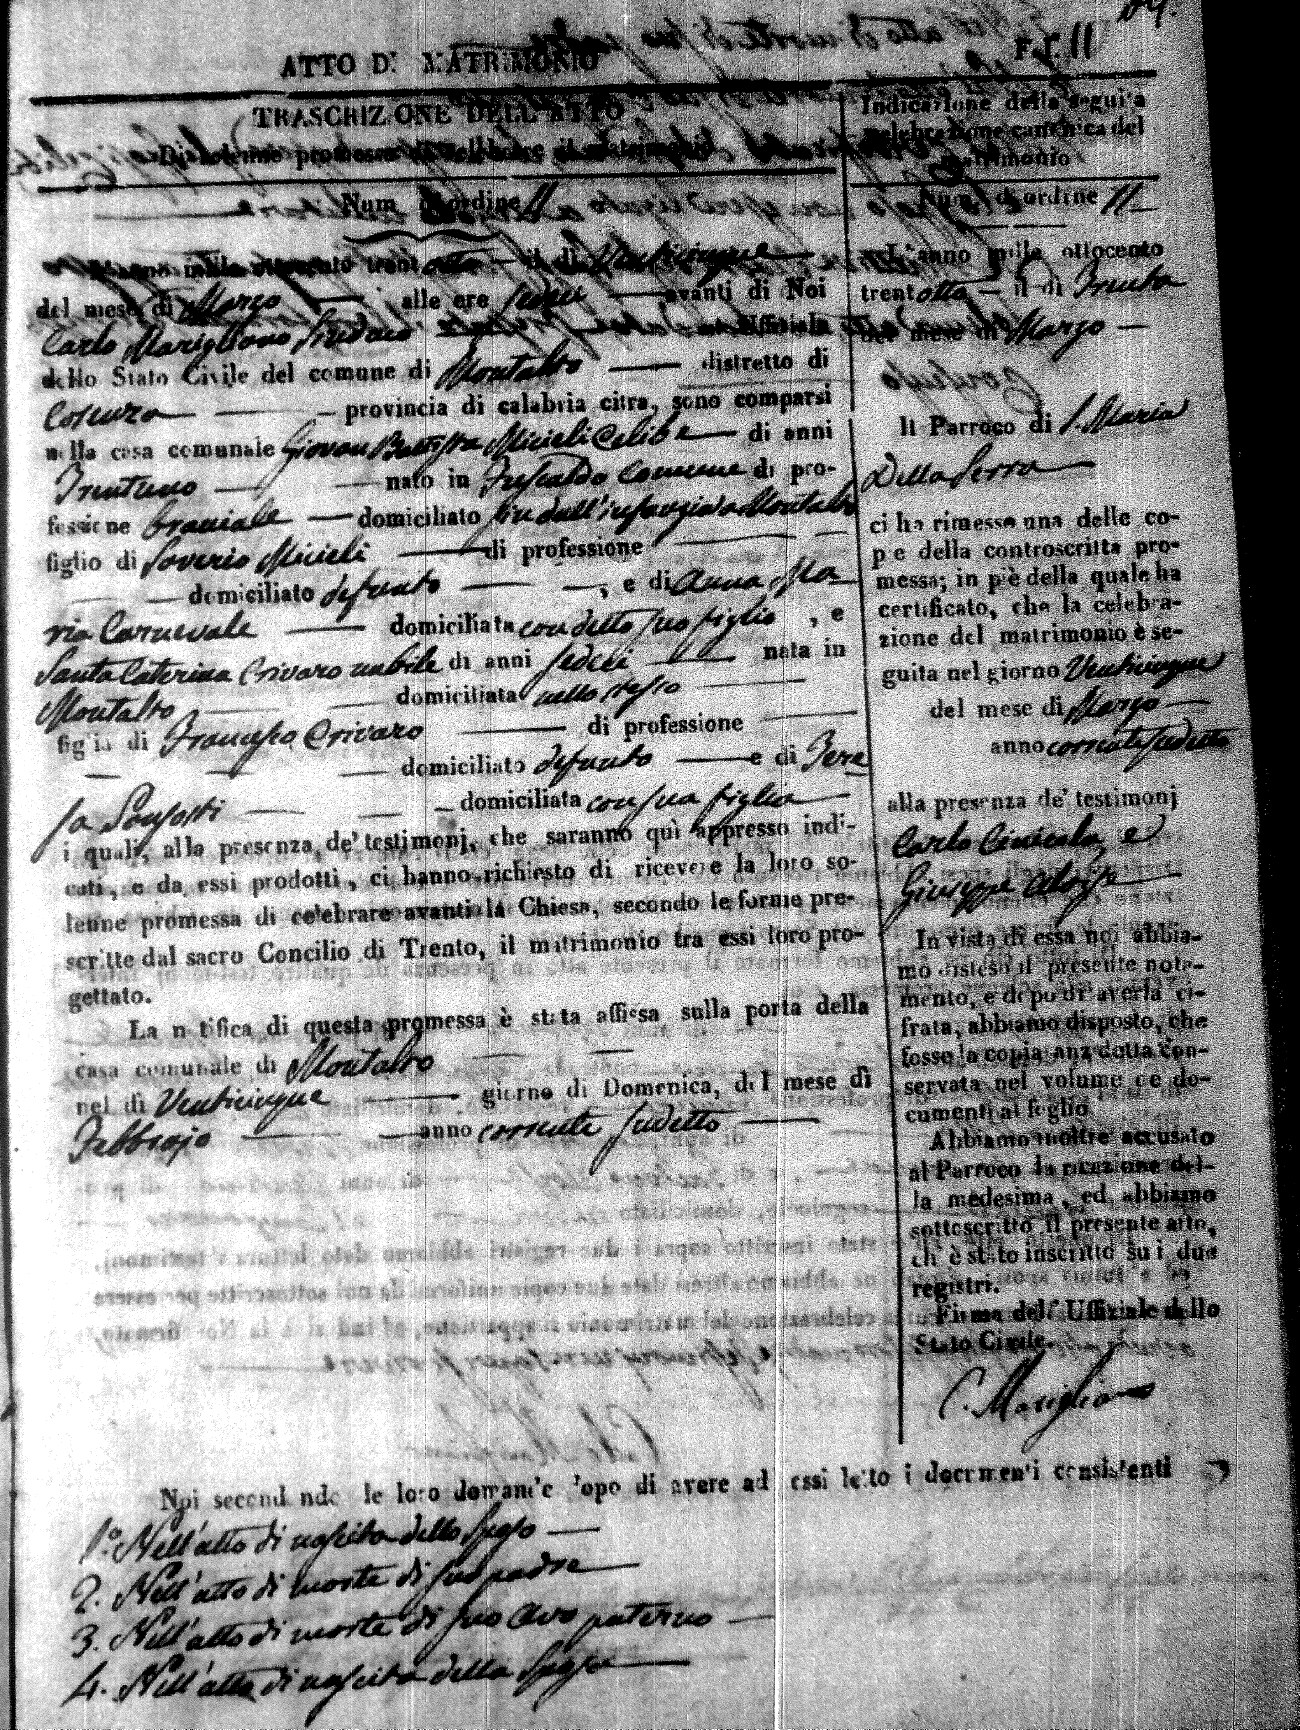 F. r. 11
ATTO DI MATRIMONIO
TRASCRIZIONE DELL'ATTO
Di solenne promessa di celebrare il matrimonio
Num d'ordine 11
L'anno mille ottocento trentotto — il dì Venticinque
del mese di Marzo — alle ore sedici — avanti di Noi
Carlo Marigliano Sindaco Uffiziale
dello Stato Civile del comune di Montalto — distretto di
Cosenza — provincia di calabria citra, sono comparsi
nella casa comunale Giovan Battista Micieli Celibe — di anni
Trentuno — nato in Fuscaldo Comune di pro-
fessione braciale — domiciliato fin dall'infanzia a Montalto
figlio di Saverio Micieli — di professione —
— domiciliato defunto — , e di Anna Ma
ria Carnevale — domiciliata con detto suo figlio , e
Santa Caterina Crivaro nubile di anni sedeci — nata in
Montalto — domiciliata nello stesso —
figlia di Francesco Crivaro — di professione —
— domiciliato defunto — e di Tere
sa Sansosti — domiciliata con sua figlia —
i quali, alla presenza de' testimonj, che saranno quì appresso indi-
cati, e da essi prodotti, ci hanno richiesto di ricevere la loro so-
lenne promessa di celebrare avanti la Chiesa, secondo le forme pre-
scritte dal sacro Concilio di Trento, il matrimonio tra essi loro pro-
gettato.
La notifica di questa promessa è stata affissa sulla porta della
casa comunale di Montalto —
nel dì Venticinque — giorno di Domenica, del mese di
Febbrajo — anno corrente sudetto —
Indicazione della seguita
celebrazione canonica del
matrimonio
Num d'ordine 11
L'anno mille ottocento
trentotto — il dì Trenta
del mese di Marzo —
Il Parroco di S. Maria
Della Serra —
ci ha rimesso una delle co-
pie della controscritta pro-
messa; in piè della quale ha
certificato, che la celebra-
zione del matrimonio è se-
guita nel giorno Venticinque
del mese di Marzo —
anno corrente sudetto
alla presenza de' testimonj
Carlo Cinicola, e
Giuseppe Aloise —
In vista di essa noi abbia-
mo disteso il presente nota-
mento, e dopo di averla ci-
frata, abbiamo disposto, che
fosse la copia anzidetta con-
servata nel volume de do-
cumenti al foglio
Abbiamo inoltre accusato
al Parroco la ricezione del-
la medesima, ed abbiamo
sottoscritto il presente atto,
ch' è stato inscritto su i due
registri.
Firma dell' Uffiziale dello
Stato Civile.
C. Marigliano
Noi secondando le loro domande dopo di avere ad essi letto i documenti consistenti
1.° Nell'atto di nascita dello sposo —
2. Nell'atto di morte di suo padre —
3. Nell'atto di morte di suo avo paterno —
4. Nell'atto di nascita della sposa —